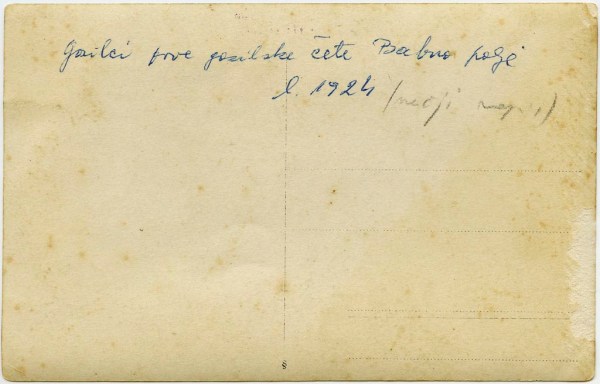 Gasilci prve gasilske čete Babno polje
l. 1924
§